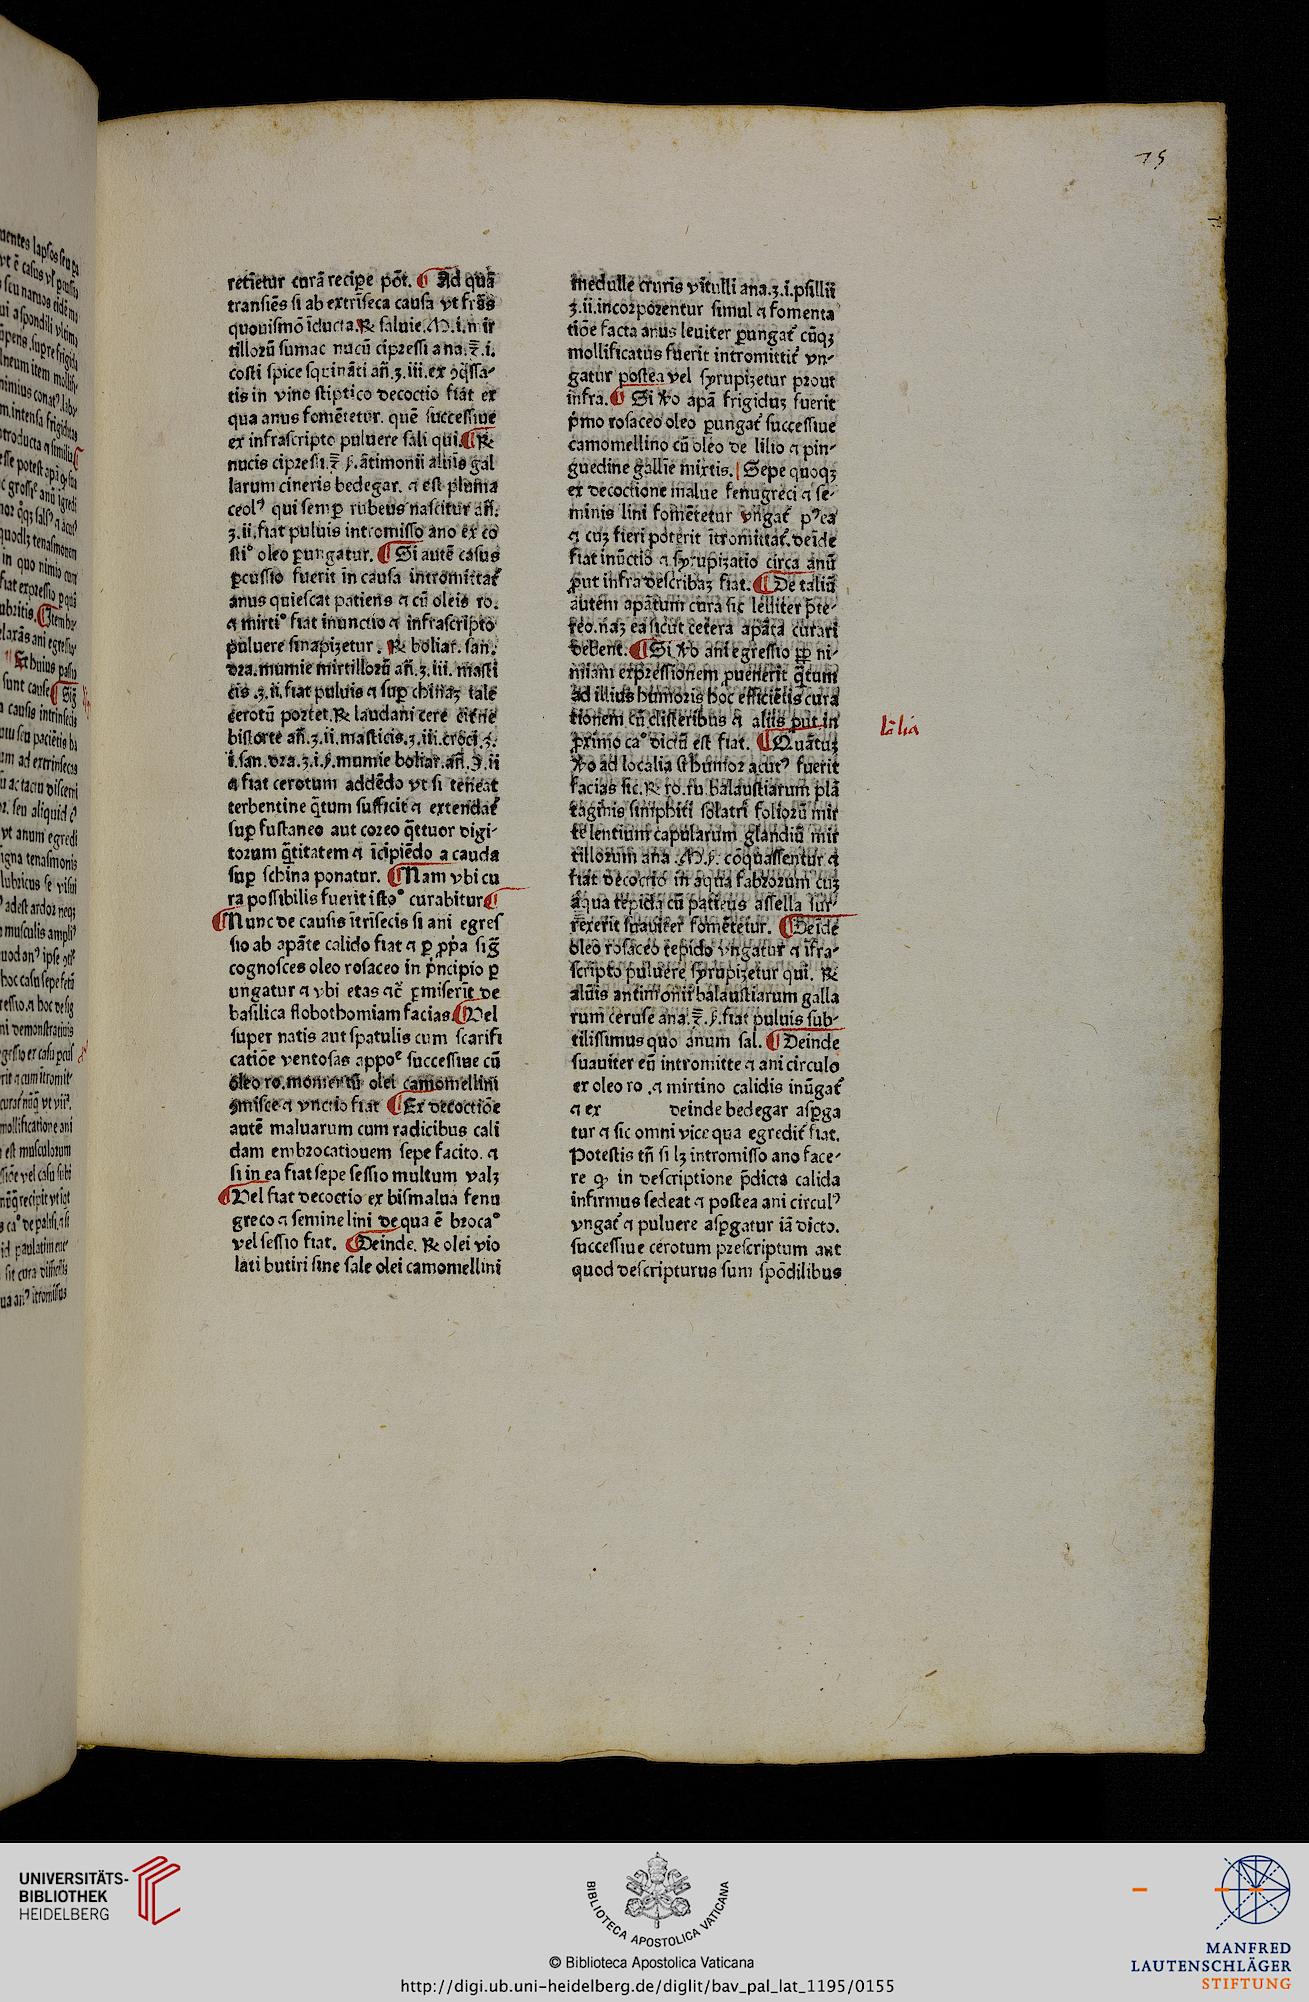 75
retiētur curā recipe pōt. ¶ Ad quā
transiēs si ab extriseca causa vt frās
quouismō īducta. ℞ saluie. M. i. mir
tillorū sumac nucū cipressi ana. ℥. i.
costi spice squināti añ. ʒ. iii. ex ꝯq̄ssa⸗
tis in vino stiptico decoctio fiat ex
qua anus fomētetur. quē successiue
ex infrascripto puluere sali qui. ¶ ℞
nucis cipressi. ℥. ẜ. ātimonii aluis gal
larum cineris bedegar. ⁊ est pluma
ceolꝰ qui semꝑ rubeus nascitur añ.
ʒ. ii. fiat puluis intromisso ano ex co
stiº oleo ꝑungatur. ¶ Si autē casus
ꝑcussio fuerit in causa intromittat᷑
anus quiescat patiens ⁊ cū oleis ro.
⁊ mirtiº fiat inunctio ⁊ infrascripto
puluere sinapizetur. ℞ boliar. san.
dra. mumie mirtillorū añ. ʒ. iii. masti
cis . ʒ. ii. fiat puluis ⁊ suꝑ chinaꝫ tale
cerotū portet. ℞ laudani cere citrie
bistorte añ. ʒ. ii. masticis. ʒ. iii. croci. ʒ.
i. san. dra. ʒ. i. ẜ. mumie boliar. añ. ℈. ii
⁊ fiat cerotum addēdo vt si teneat
terbentine q̄tum sufficit ⁊ extendat᷑
suꝑ fustaneo aut coreo q̄ttuor digi⸗
torum q̄titatem ⁊ īcipiēdo a cauda
suꝑ schina ponatur. ¶ Nam vbi cu
ra possibilis fuerit istoº curabitur ¶
¶ Nunc de causis ītrisecis si ani egres
sio ab apāte calido fiat ⁊ ꝑ ꝓpa sig̃
cognosces oleo rosaceo in pncipio ꝑ
ungatur ⁊ vbi etas ⁊c̄ ꝑmiserīt de
basilica flobothomiam facias. ¶ Vel
super natis aut spatulis cum scarifi
catiōe ventosas appoᵉ successiue cū
oleo ro. momentū olei camomellini
ꝯmisce ⁊ vnctio fiat ¶ Ex decoctiōe
autē maluarum cum radicibus cali
dam embrocationem sepe facito. ⁊
si in ea fiat sepe sessio multum valꝫ
¶ Vel fiat decoctio ex bismalua fenu
greco ⁊ semine lini de qua ē brocaº
vel sessio fiat. ¶ Deinde. ℞ olei vio
lati butiri sine sale olei camomellini
medulle cruris vitulli ana. ʒ. i. psillii
ʒ. ii. incorporentur simul ⁊ fomenta
tiōe facta anus leuiter ꝑungat᷑ cūqꝫ
mollificatus fuerit intromittit᷑ vn⸗
gatur postea vel syrupizetur prout
infra. ¶ Si ꝟo apā frigiduꝫ fuerit
pmo rosaceo oleo ꝑungat᷑ successiue
camomellino cū oleo de lilio ⁊ pin⸗
guedine gallie mixtis. Sepe quoqꝫ
ex decoctione malue fenugreci ⁊ se⸗
minis lini fomētetur vngat᷑ pꝰea
⁊ cuꝫ fieri poterit ītromittat᷑. deīde
fiat inūctio ⁊ syrupizatio circa anū
ꝓut infra describaꝫ fiat. ¶ De taliū
autem apatum cura sic leuiter pte⸗
reo. naꝫ ea sicut cetera apāta curari
debent. ¶ Si ꝟo ani egressio ꝓꝑ ni⸗
miam expressionem ꝓuenerit q̄tum
ad illius humoris hoc efficiētis cura
tionem cū clisteribus ⁊ aliis ꝓut in
ꝓximo caº dictū est fiat. ¶ Quātuꝫ
ꝟo ad localia si humor acutꝰ fuerit
facias sic. ℞ ro. ru. balaustiarum plā
taginis simphiti solatri foliorū mir
te lentium capularum glandiū mir
tillorum ana . M. ẜ. cōquassentur ⁊
fiat decoctio in aqua fabrorum cuꝫ
aqua tepida cū patiens assella sur⸗
rexerit suauiter fomētetur. ¶ Deīde
oleo rosaceo tepido vngatur ⁊ īfra⸗
scripto puluere syrupizetur qui. ℞
aluis antimonii balaustiarum galla
rum ceruse ana. ℥. ẜ. fiat puluis sub⸗
tilissimus quo anum sal. ¶ Deinde
suauiter eū intromitte ⁊ ani circulo
ex oleo ro . ⁊ mirtino calidis inūgat᷑
⁊ ex deinde bedegar asꝑga
tur ⁊ sic omni vice qua egredit᷑ fiat.
Potestis tn̄ si lꝫ intromisso ano face⸗
re ꝙ in descriptione pdicta calida
infirmus sedeat ⁊ postea ani circulꝰ
vngat᷑ ⁊ puluere asꝑgatur iā dicto.
successiue cerotum prescriptum aut
quod descripturus sum spōdilibus
lālia
UNIVERSITÄTS-
BIBLIOTHEK
HEIDELBERG
BIBLIOTECA APOSTOLICA VATICANA
© Biblioteca Apostolica Vaticana
http://digi.ub.uni-heidelberg.de/diglit/bav_pal_lat_1195/0155
MANFRED
LAUTENSCHLÄGER
STIFTUNG